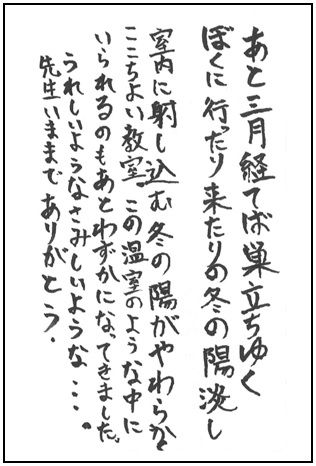 あと三月経てば巣立ちゆく
ぼくに行ったり来たりの冬の陽淡し
室内に射し込む冬の陽がやわらかく
ここちよい教室。この温室のような中に
いられるのもあとわずかになってきました。
うれしいようなさみしいような…。
先生いままでありがとう.